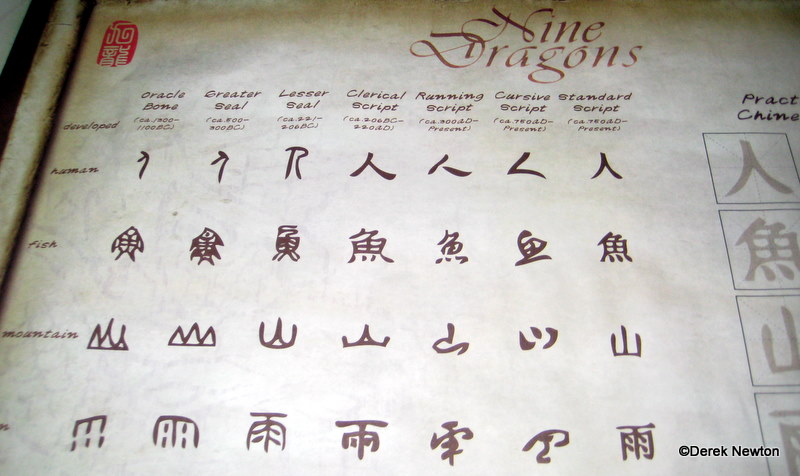 九龍
Nine
Dragons
Oracle Bone Greater Seal Lesser Seal Clerical Script Running Script Cursive Script Standard Script
developed (ca.1300-1100BC) (ca.800-300BC) (ca.221-206BC) (ca.206BC-220AD) (ca.300AD-Present) (ca.750AD-Present) (ca.750AD-Present)
human 人 人 人 人 人 人 人
fish 魚 魚 魚 魚 魚 魚 魚
mountain 山 山 山 山 山 山 山
n 雨 雨 雨 雨 雨 雨 雨
Pract
Chine
人
魚
山
雨
©Derek Newton